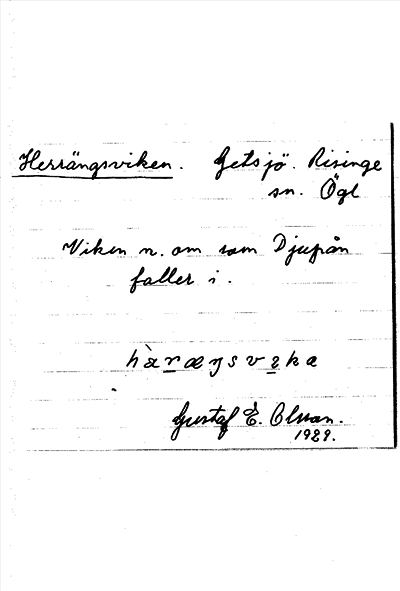 Herrängsviken. Getsjö. Risinge
sn. Ögl
Viken n. om som Djupån
faller i.
hæ̀ræŋsvika
Gustaf E. Olsson.
1929.